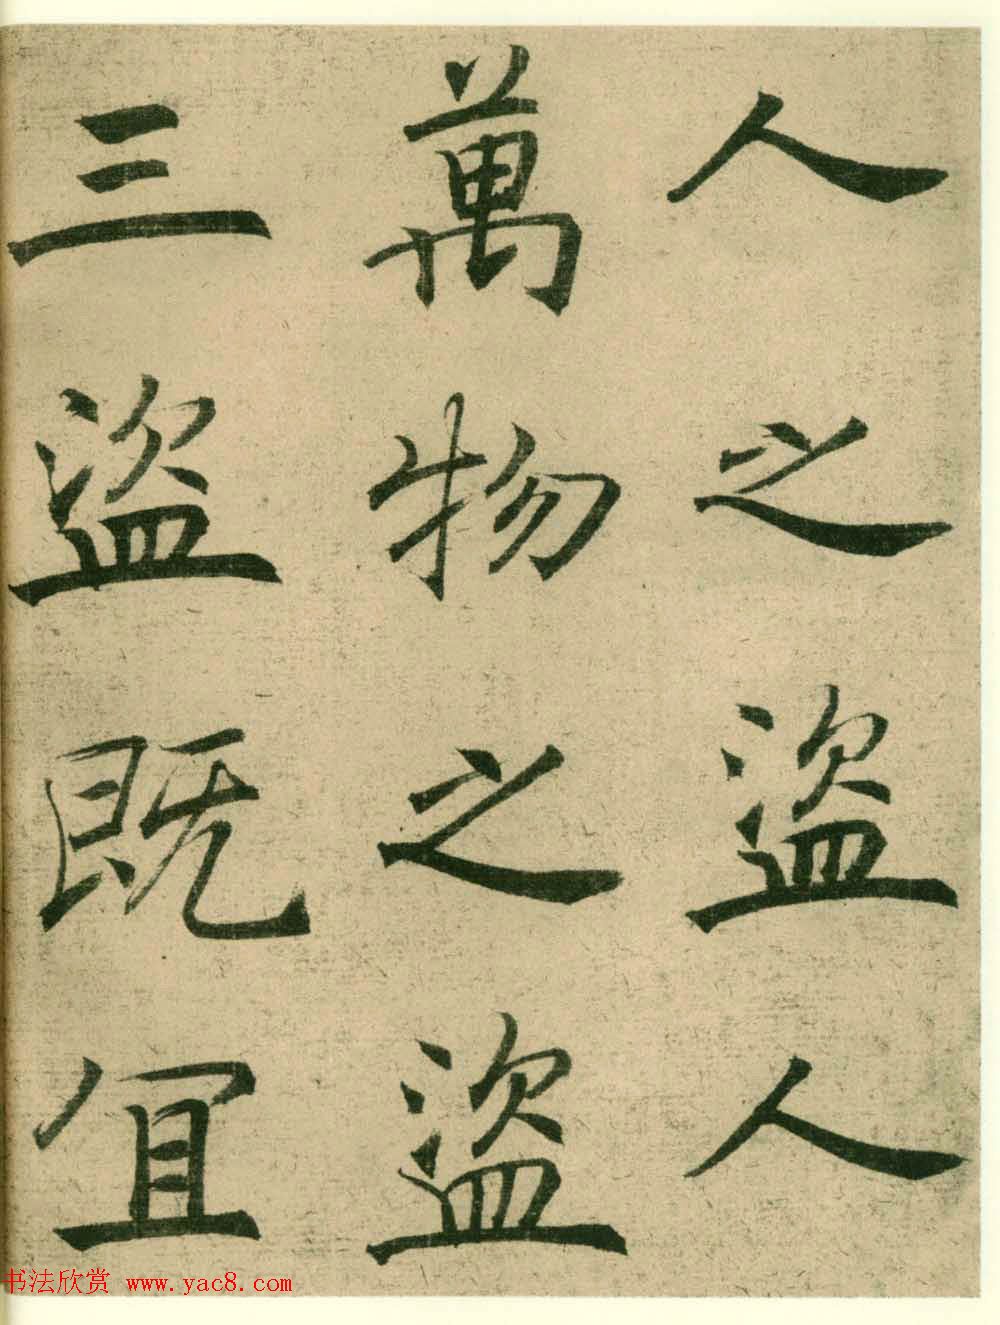 人之盗人
萬物之盗
三盗既宜
书法欣赏 www.yac8.com